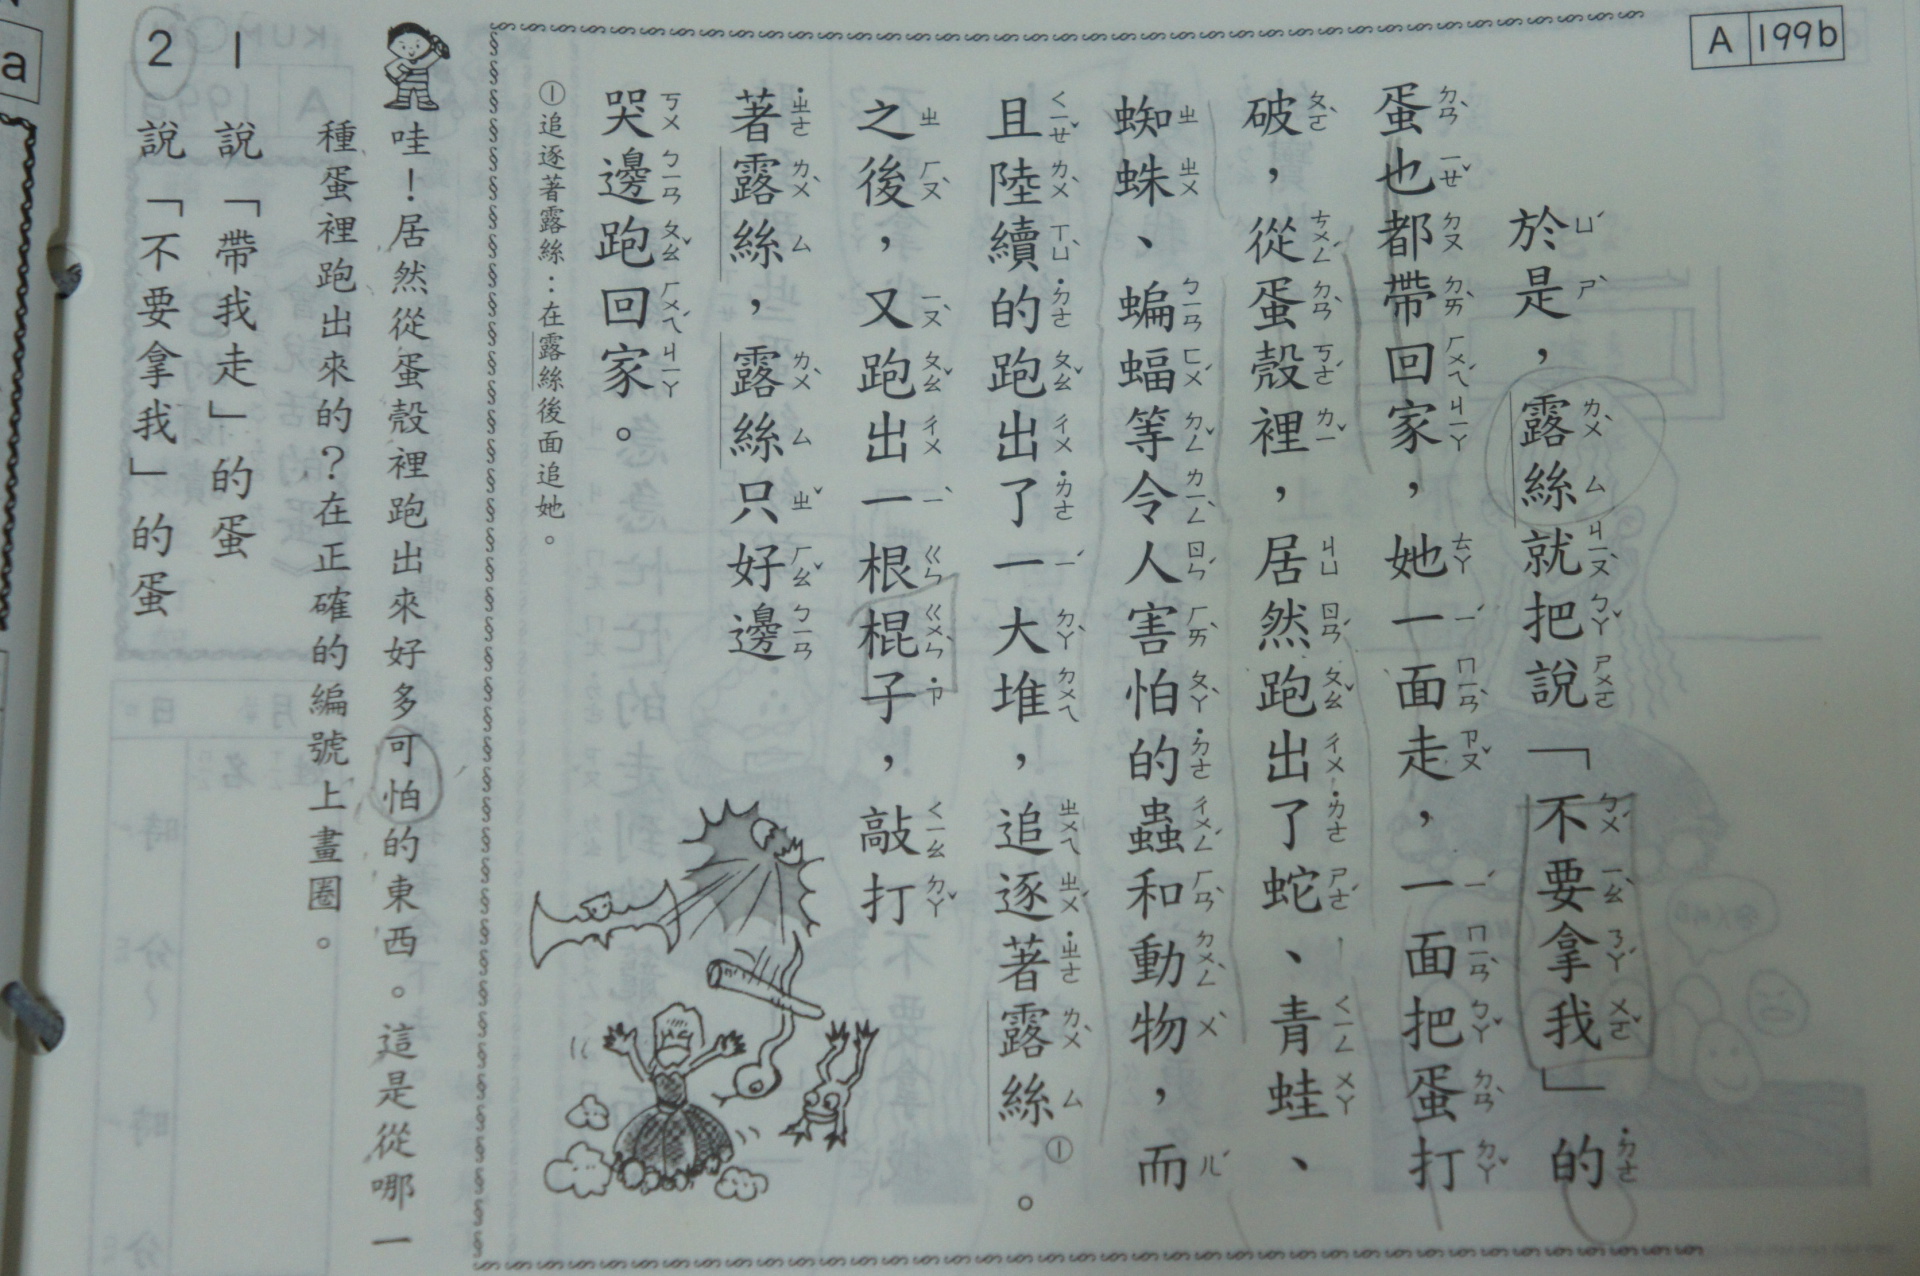 A 199b
於是，露絲就把說「不要拿我」的
蛋也都帶回家，她一面走，一面把蛋打
破，從蛋殼裡，居然跑出了蛇、青蛙、
蜘蛛、蝙蝠等令人害怕的蟲和動物，而
且陸續的跑出了一大堆，追逐著露絲①。
之後，又跑出一根棍子，敲打
著露絲，露絲只好邊
哭邊跑回家。
①追逐著露絲：在露絲後面追她。
哇！居然從蛋殼裡跑出來好多可怕的東西。這是從哪一
種蛋裡跑出來的？在正確的編號上畫圈。
1 說「帶我走」的蛋
2 說「不要拿我」的蛋
a